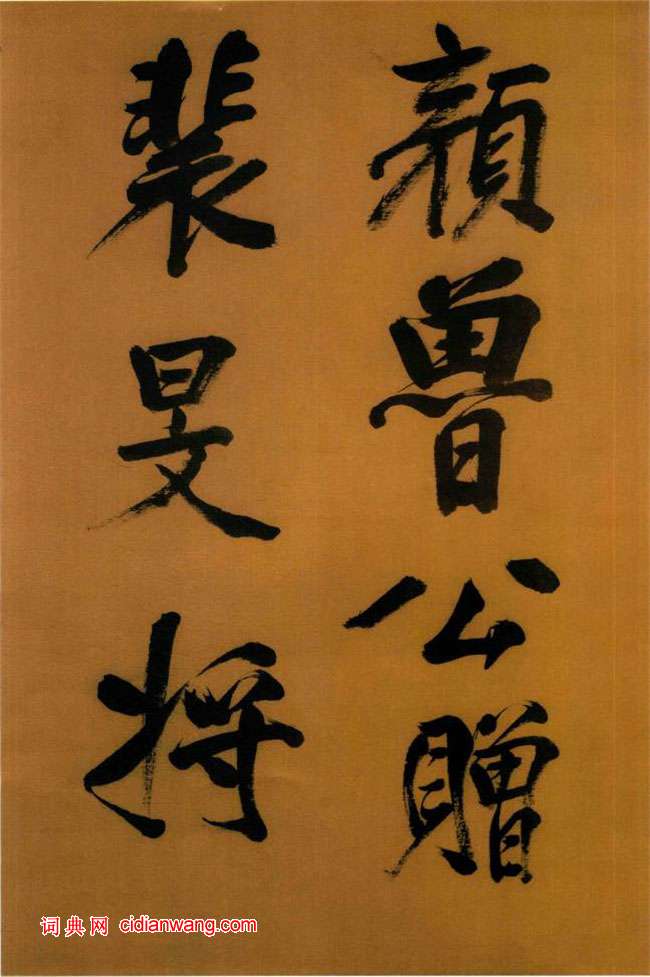 顔魯公贈
裴旻将
词典网 cidianwang.com